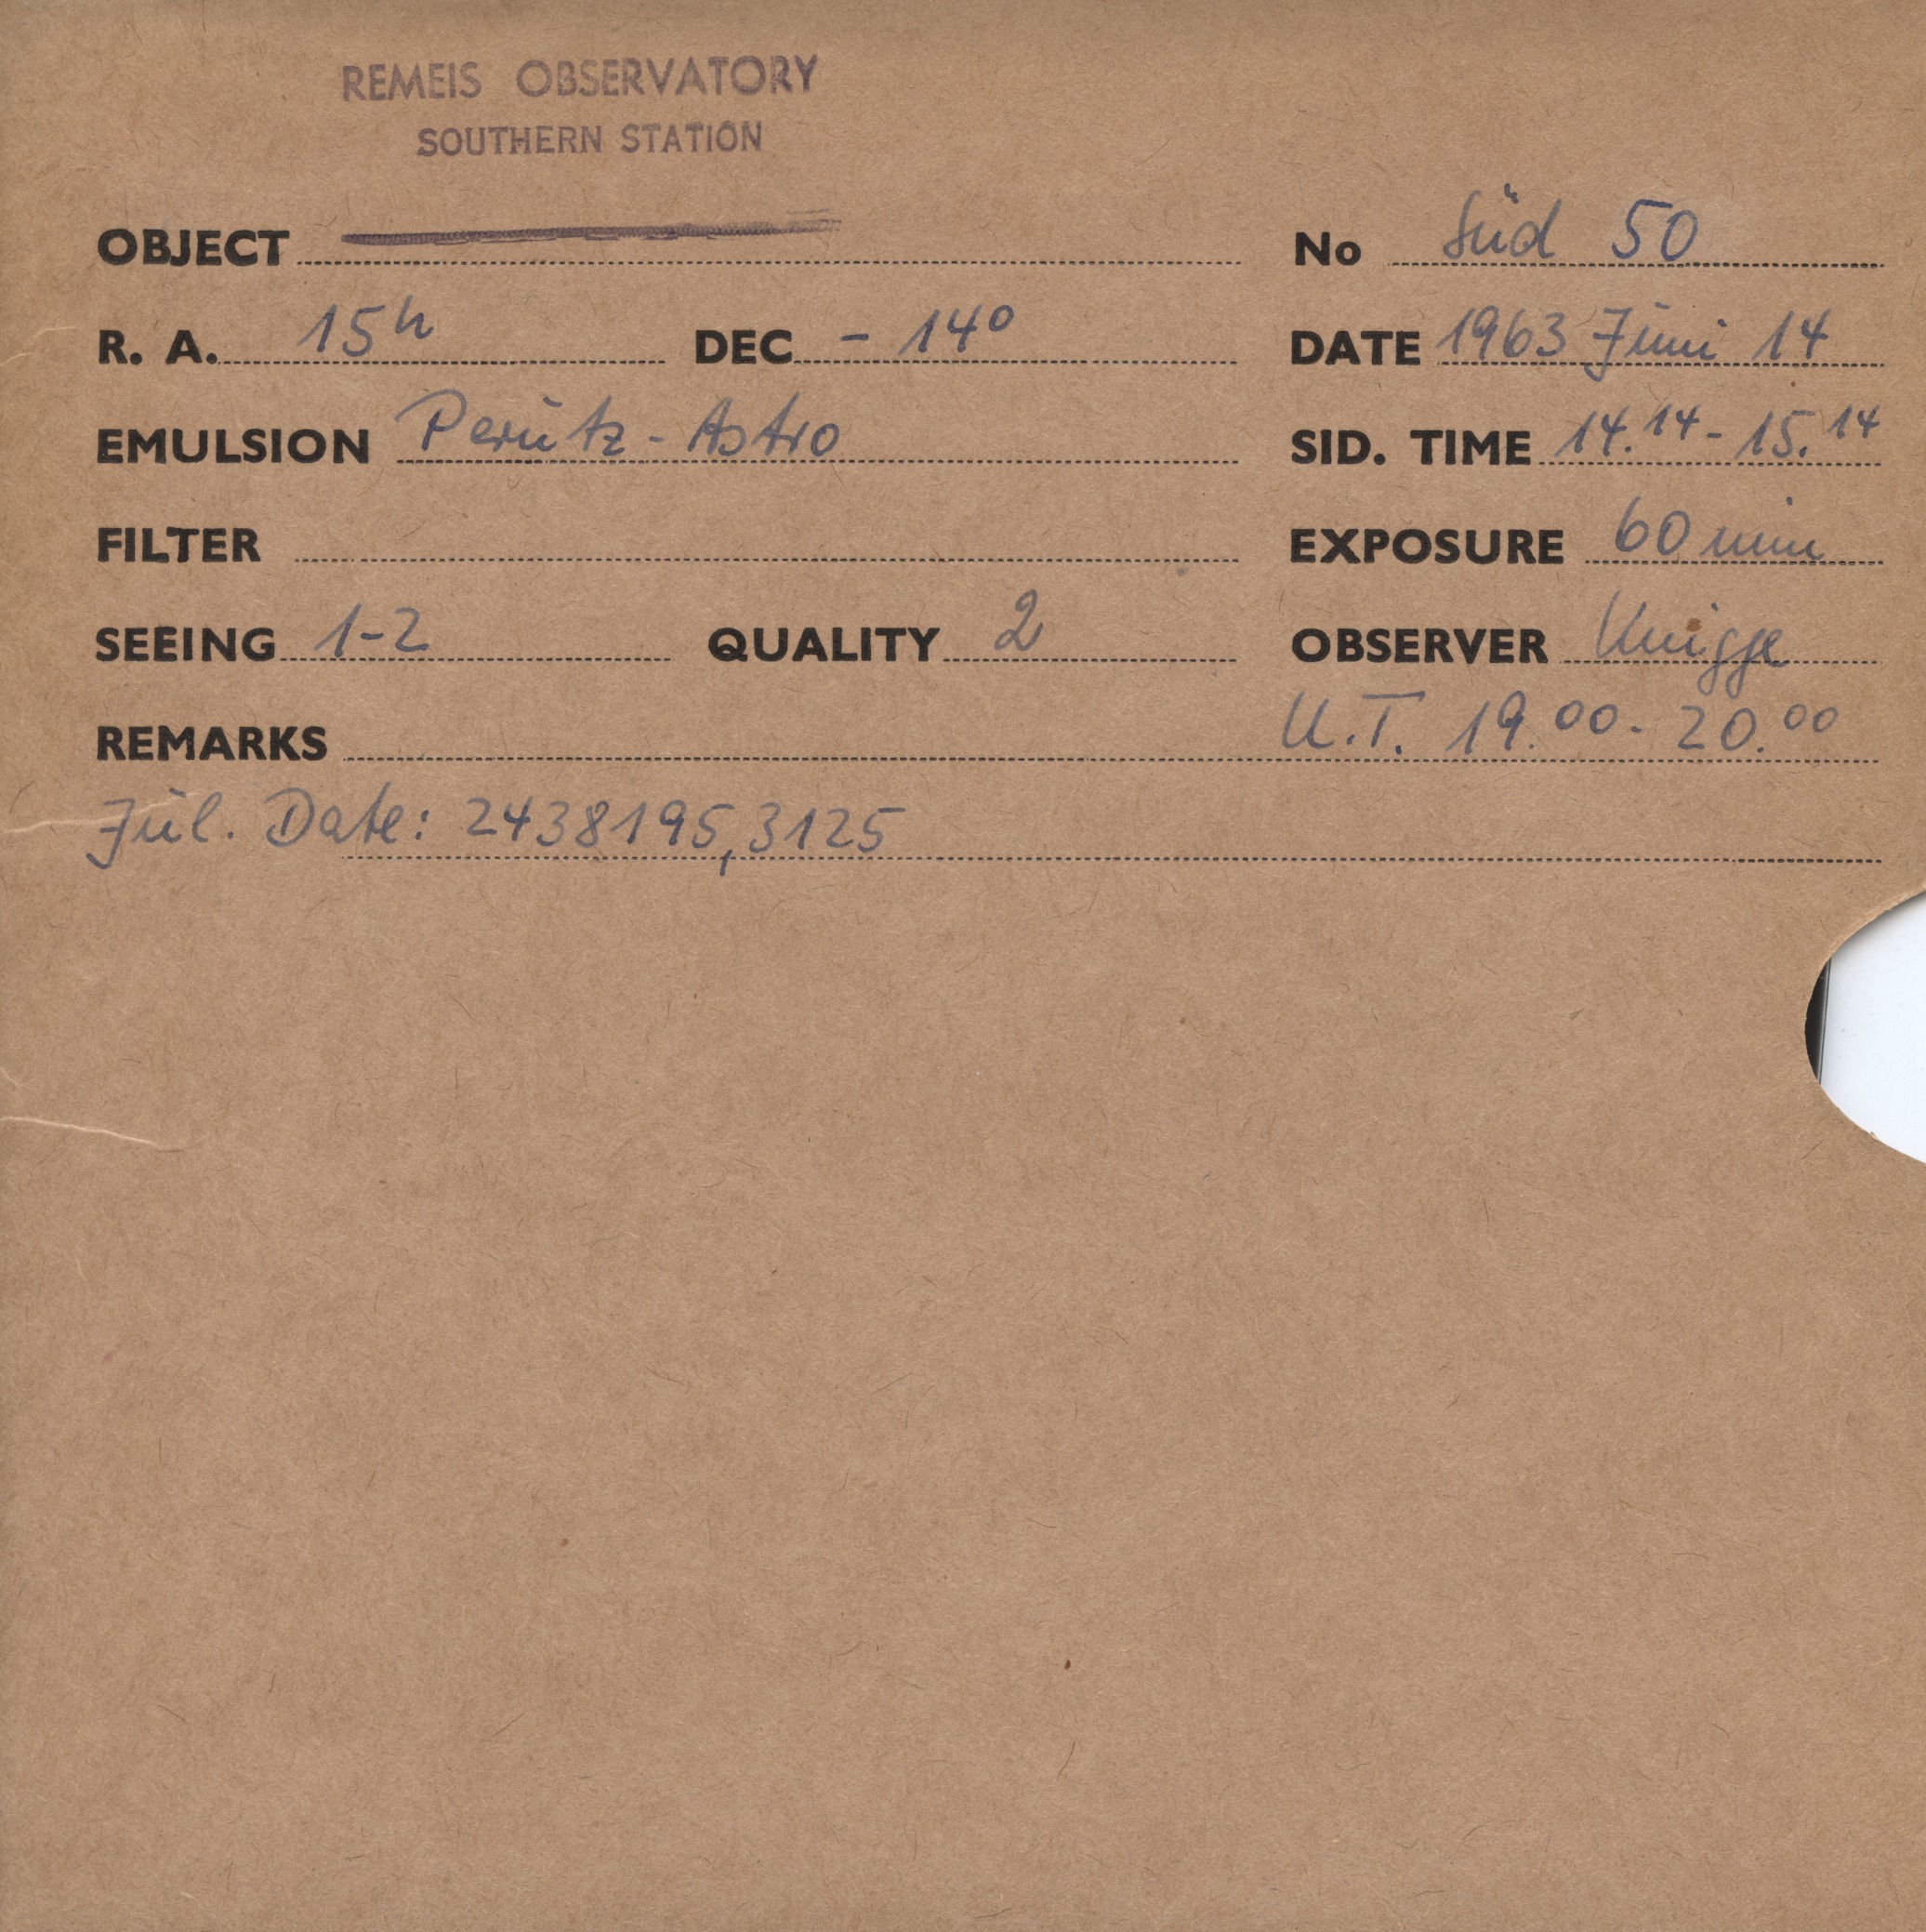 REMEIS OBSERVATORY
SOUTHERN STATION
OBJECT No Süd 50
R. A. 15h DEC - 14° DATE 1963 Juni 14
EMULSION Perutz - Astro SID. TIME 14.14 - 15.14
FILTER EXPOSURE 60 min
SEEING 1-2 QUALITY 2 OBSERVER Knigge
REMARKS U.T. 19.00 - 20.00
Jul. Date: 2438195,3125